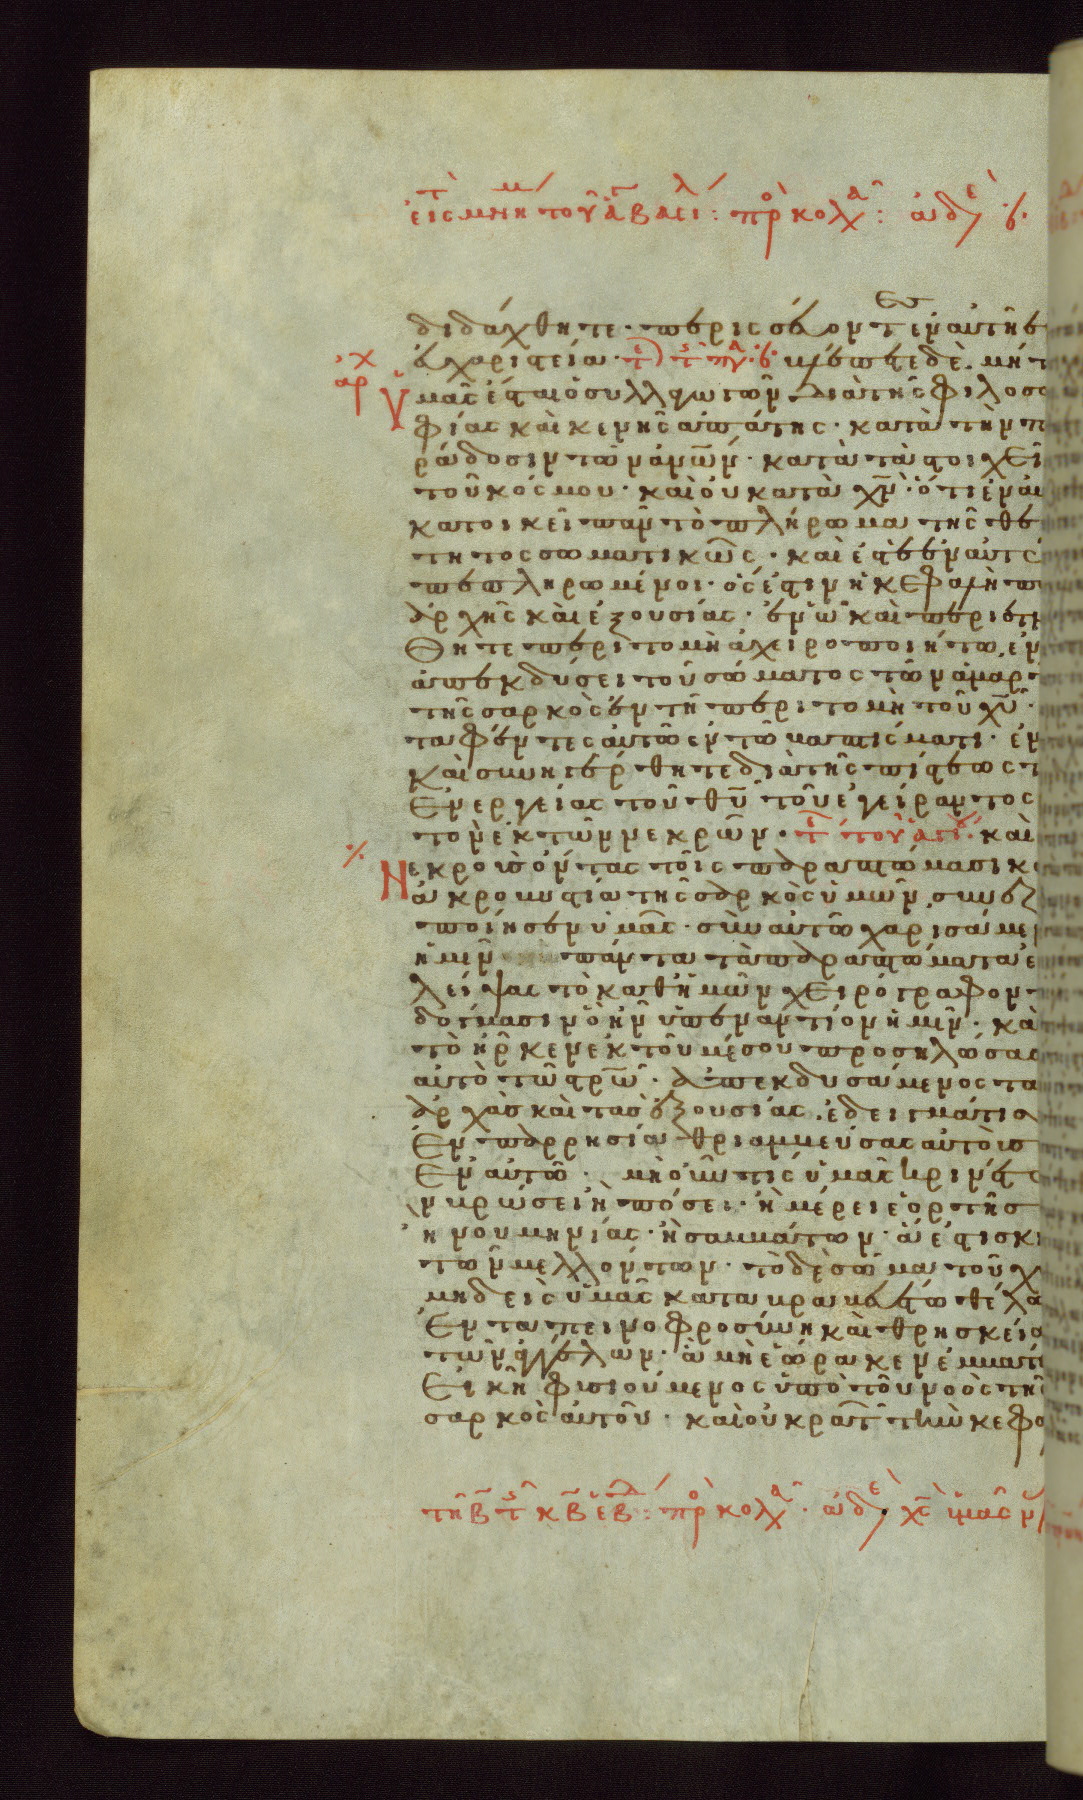 εἰς μνη τοῦ ἁ βασι : πρ κολ : ὠδ
διδάχθητε · περισσεύοντες ἐν αὐτῆ ἐ
εὐχαριστεία · βλέπεται δὲ μή τ
ὑμᾶς ἔσται ὁ συλλαγωγῶν διὰ τῆς φιλοσο
φίας καὶ κενῆς ἀπάτης · κατὰ τὴν π
ράδοσιν τῶν ἀνων · κατὰ τὰ στοιχεῖ
τοῦ κόσμου · καὶ οὐ κατὰ χν · ὅτι ἐν αυ
κατοικεῖ πᾶν τὸ πλήρωμα τῆς θε
τητος σωματικῶς · καὶ ἐστὲ ἐν αὐτῶ
πεπληρωμένοι · ὅς ἐστιν ἡ κεφαλὴ π
ἀρχῆς καὶ ἐξουσίας · ἐν ὧ καὶ περιετμ
θητε περιτομῆ ἀχειροποιήτω, ἐν
ἀπεκδύσει τοῦ σώματος τῶν ἁμαρ
τῆς σαρκὸς ἐν τῆ περιτομῆ τοῦ χυ ·
ταφέντες αὐτῶ ἐν τῶ βαπτίσματι · ἐν
καὶ συνηγέρθητε διὰ τῆς πίστεως τ
ἐνεργείας τοῦ θυ τοῦ ἐγείραντος
τον ἐκ τῶν νεκρῶν · καὶ
Νεκροὺς ὄντας τοῖς παραπτώμασι κ
ἀκροβυστία τῆς σαρκὸς ὑμῶν, συνεζ
ποίησεν ὑμᾶς · σὺν αὐτῶ χαρισάμε
ἡμῖν πάντα τὰ παραπτώματα ἐ
λείψας τὸ καθ ἡμῶν χειρόγραφον
δόγμασιν ὃ ἦν ὑπεναντίον ἡμῖν · κα
τὸ ἦρκεν ἐκ τοῦ μέσου προσηλώσας
αὐτὸ τῶ στρω · ἀπεκδυσάμενος τα
ἀρχὰς καὶ τὰς ἐξουσίας · ἐδειγμάτισ
ἐν παρρησία θριαμβεύσας αὐτοὺς
ἐν αὐτῶ · μὴ οὖν τις ὑμᾶς κρινέτω
ἐν βρώσει ἢ πόσει · ἢ μέρει ἑορτῆς
ἢ νουμηνίας · ἢ σαββάτων · ἅ ἐστι σκι
τῶν μελλόντων · τὸ δὲ σῶμα τοῦ χ
μηδεὶς ὑμᾶς καταβραβευέτω θέλω
ἐν ταπεινοφροσύνη καὶ θρησκεία
τῶν ἀγγέλων · ἃ μὴ ἑώρακεν ἐμβατ
εἰκῆ φυσιούμενος ὑπὸ τοῦ νοὸς τῆς
σαρκὸς αὐτοῦ · καὶ οὐ κρατ τὴν κεφα
τῆ β κβ ἑβ : πρ κολ · ὠδ, χς ἡμᾶς